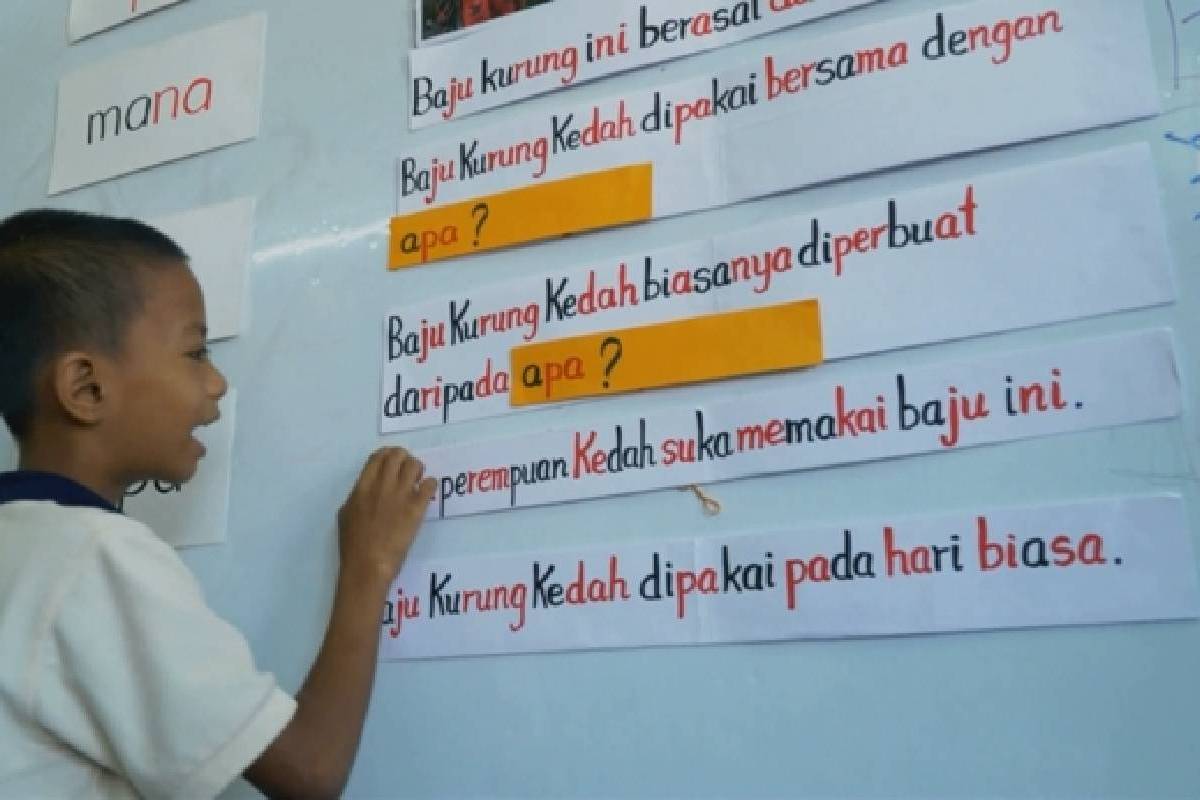 mana
Baju kurung ini berasal
Baju Kurung Kedah dipakai bersama dengan
apa ?
Baju Kurung Kedah biasanya diperbuat
daripada apa ?
perempuan Kedah suka memakai baju ini .
Kurung Kedah dipakai pada hari biasa .